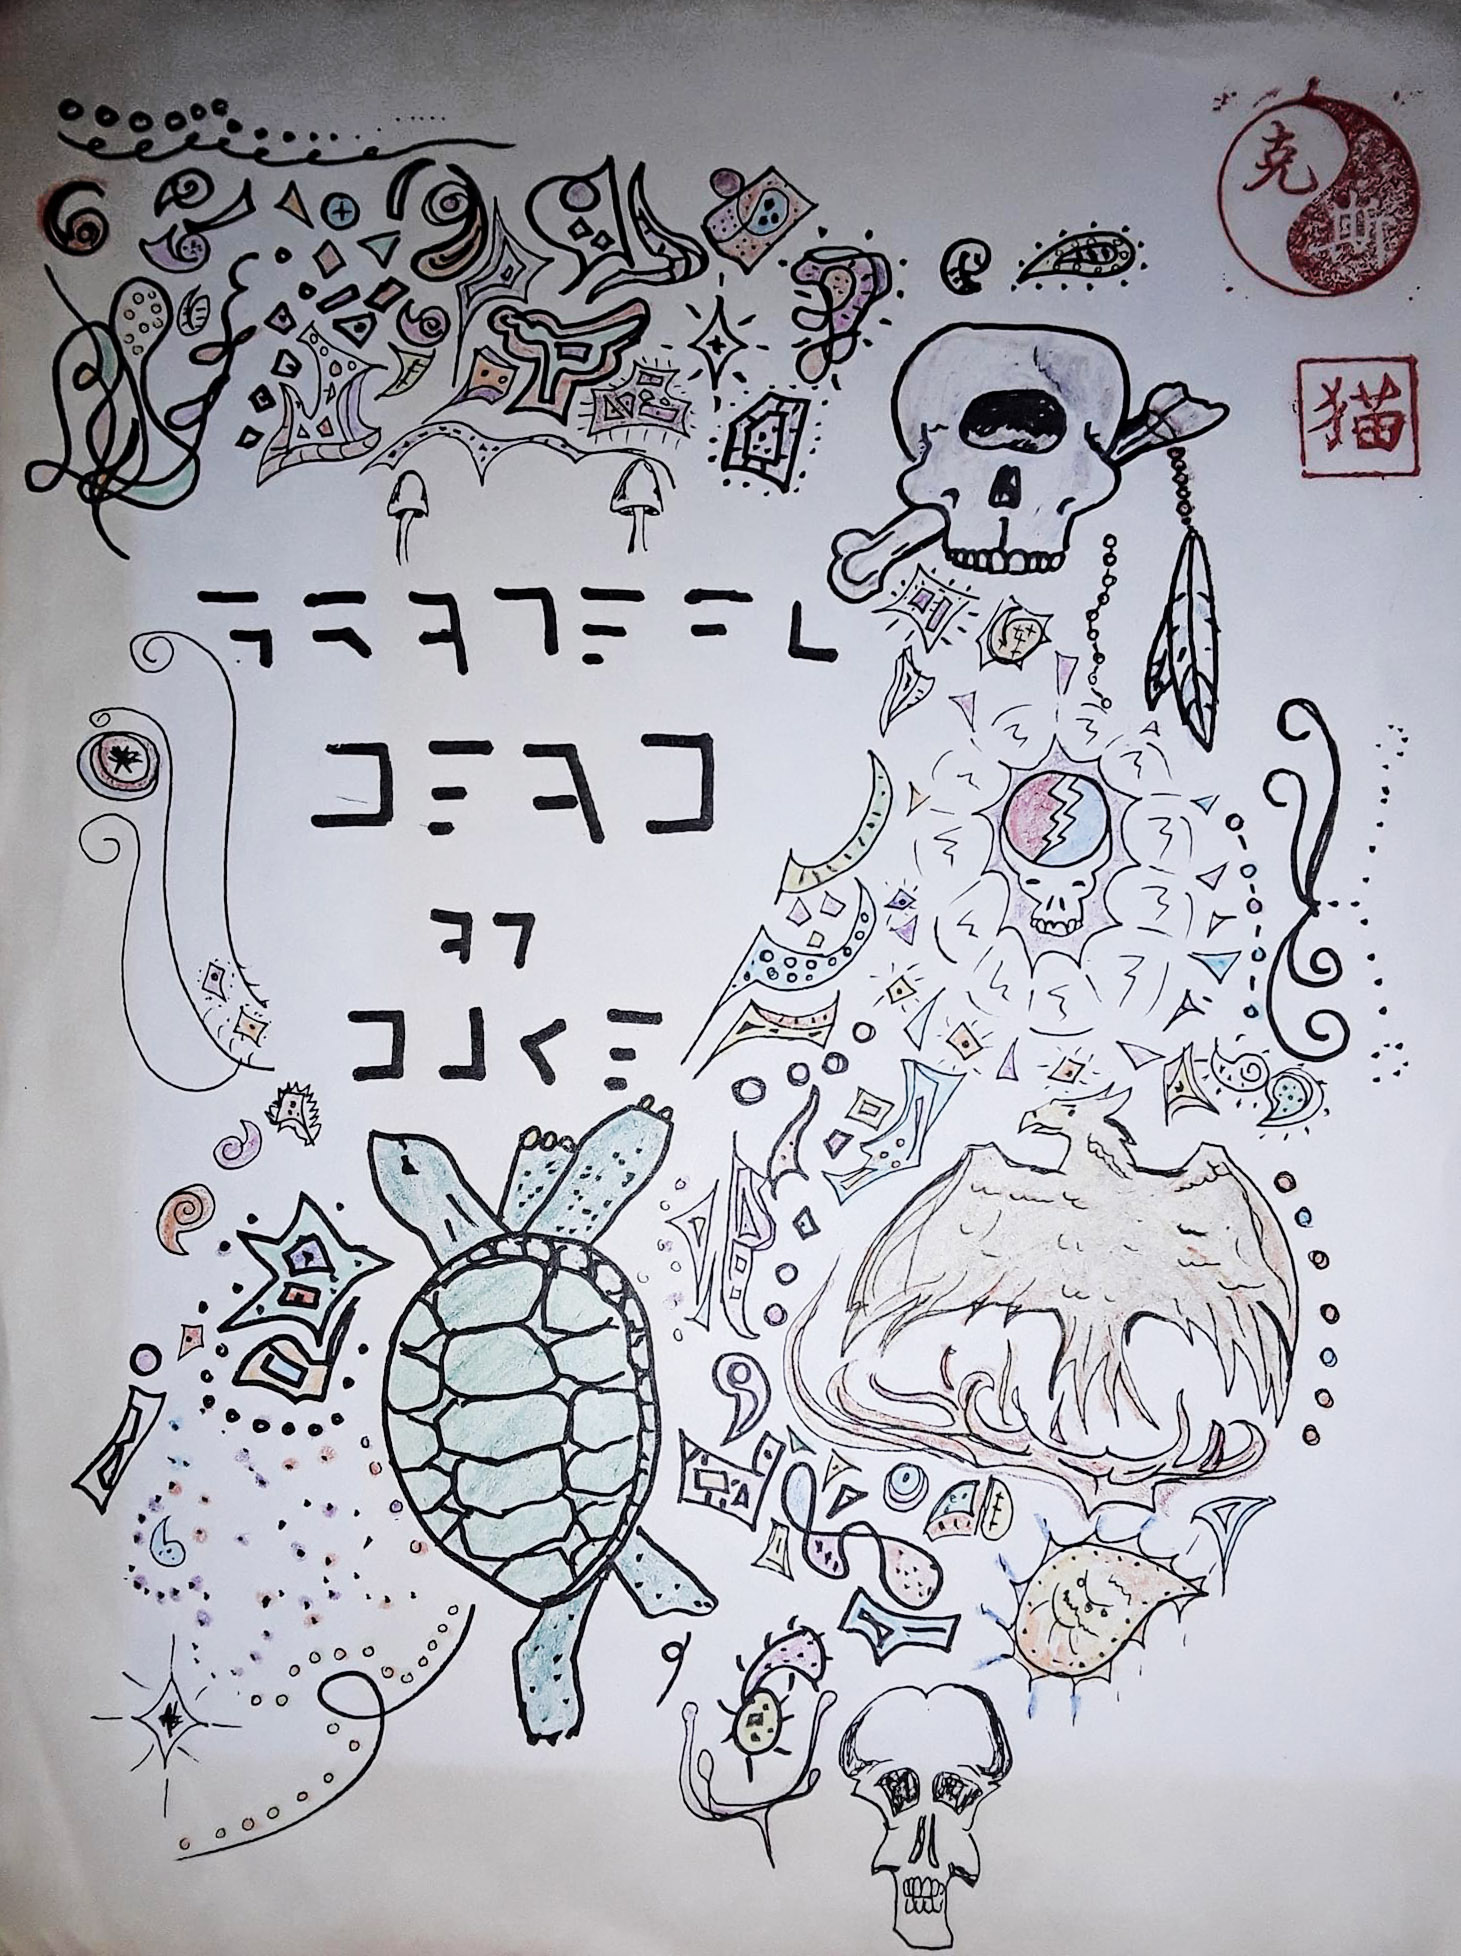 克斯
猫
GRATEFL
DEAD
AT
DUKE